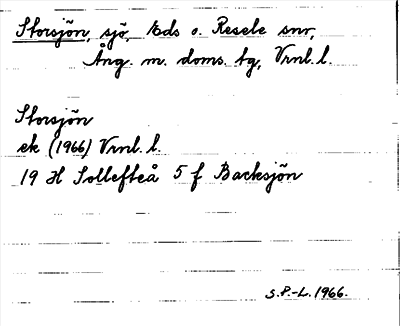 Storsjön, sjö, Eds o. Resele snr,
Ång. m. doms. tg, Vrnl. l.
Storsjön
ek (1966) Vrnl. l.
19 H Sollefteå 5 f Backsjön
S.P.-L. 1966.